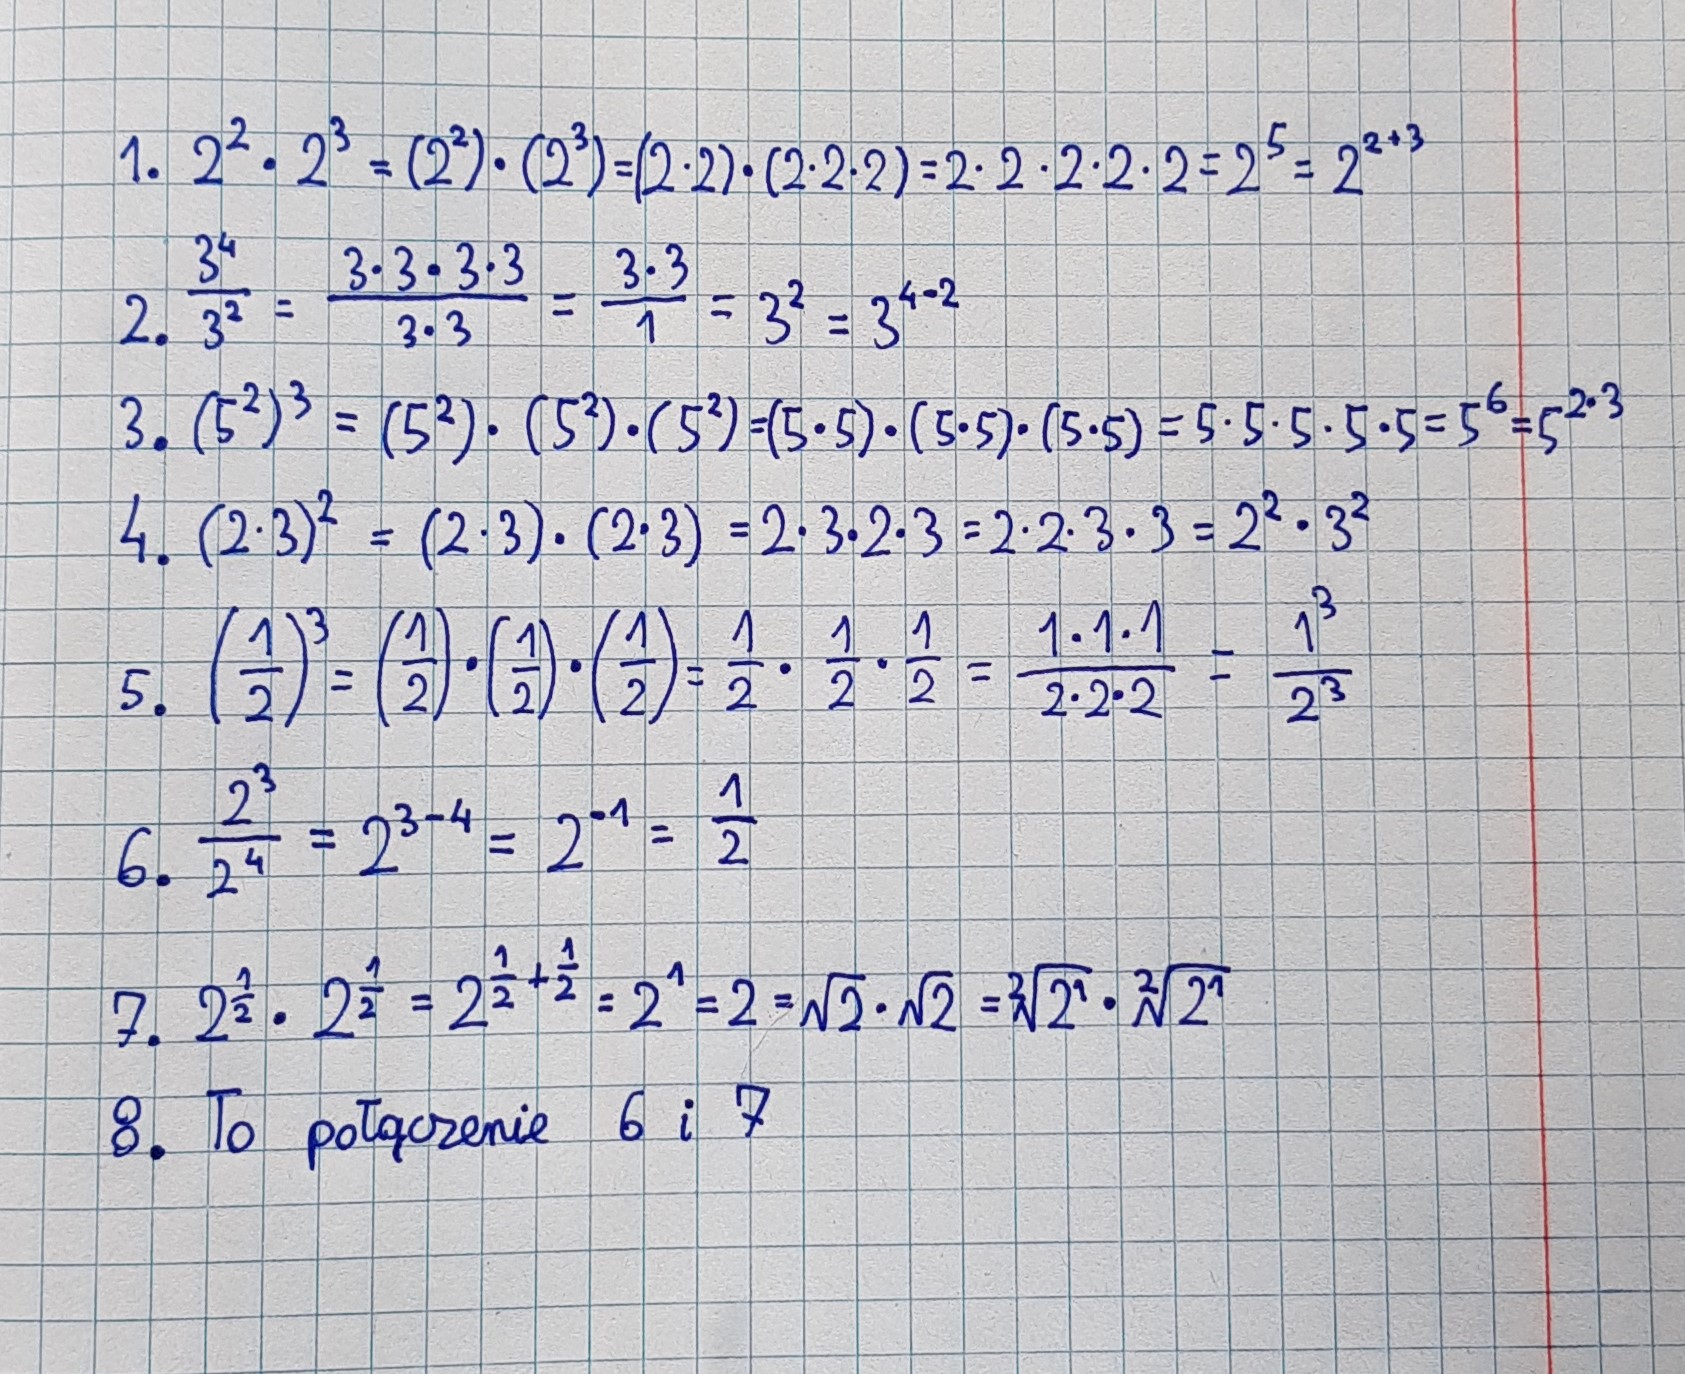 1. 2² · 2³ = (2²) · (2³) = (2·2) · (2·2·2) = 2·2·2·2·2 = 2⁵ = 2²⁺³
2. 3⁴/3² = (3·3·3·3)/(3·3) = (3·3)/1 = 3² = 3⁴⁻²
3. (5²)³ = (5²) · (5²) · (5²) = (5·5) · (5·5) · (5·5) = 5·5·5·5·5 = 5⁶ = 5^(2·3)
4. (2·3)² = (2·3) · (2·3) = 2·3·2·3 = 2·2·3·3 = 2² · 3²
5. (1/2)³ = (1/2) · (1/2) · (1/2) = 1/2 · 1/2 · 1/2 = (1·1·1)/(2·2·2) = 1³/2³
6. 2³/2⁴ = 2³⁻⁴ = 2⁻¹ = 1/2
7. 2^(1/2) · 2^(1/2) = 2^(1/2+1/2) = 2¹ = 2 = √2 · √2 = ²√(2¹) · ²√(2¹)
8. To połączenie 6 i 7